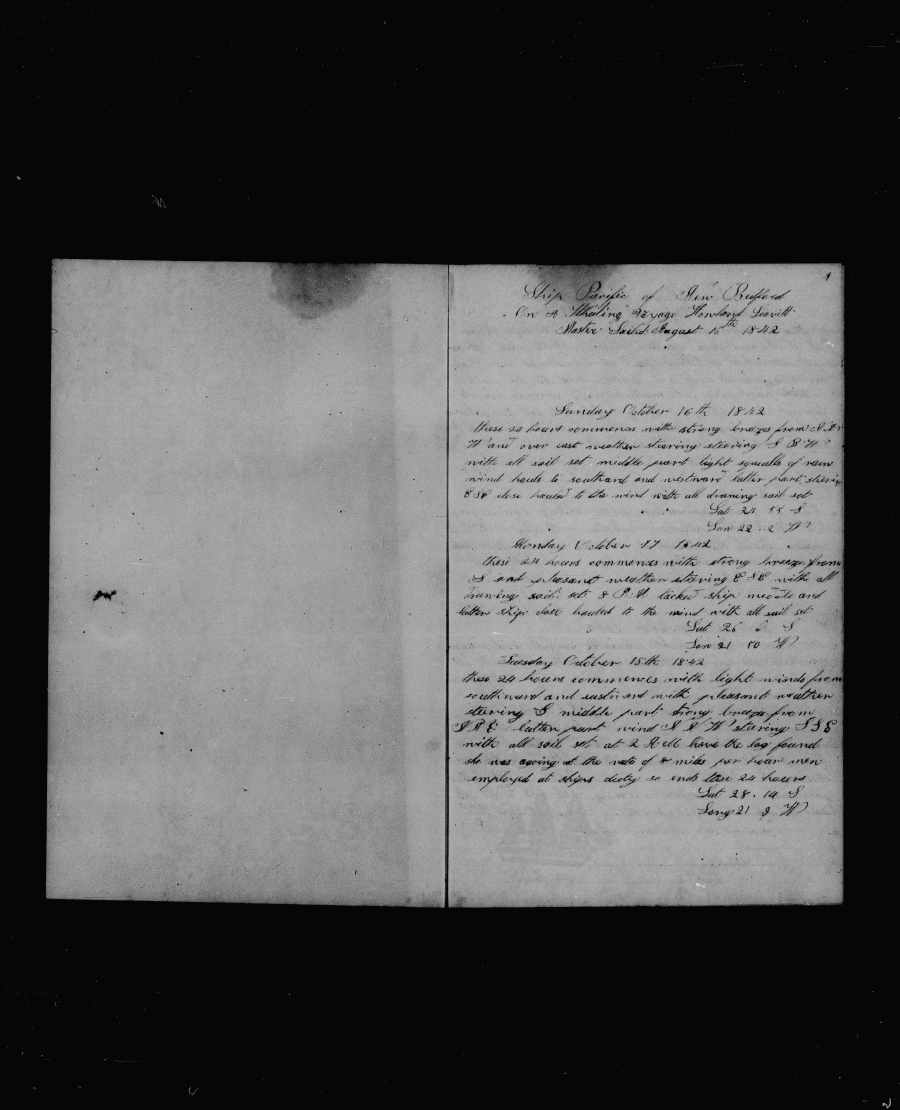 1
Ship Pacific of New Bedford
On A Whaling Voyage Howland Leavitt
Master Sailed August 15th 1842
Sunday October 16th 1842
these 24 hours commences with strong breezes from
W and over cast weather steering steering S B W
with all sail set middle part light squalls of rain
wind hauls to southard and westward latter part steering
E S E close hauled to the wind with all drawing sail set
Lat 24 S
Lon 22 2 W
Monday October 17 1842
these 24 hours commences with strong breeze from
S and pleasant weather steering E S E with all
drawing sails set 8 P M tacked ship middle and
latter ship close hauled to the wind with all sail set
Lat 26 6 S
Lon 21 50 W
Tuesday October 18th 1842
these 24 hours commences with light winds from
southward and eastward with pleasant weather
steering S middle part strong breezes from
latter part wind N N W steering S S E
with all sail set at 2 A M hove the log found
she was agoing at the rate of 8 miles per hour men
employed at ships duty so ends these 24 hours
Lat 28 14 S
Long 21 9 W